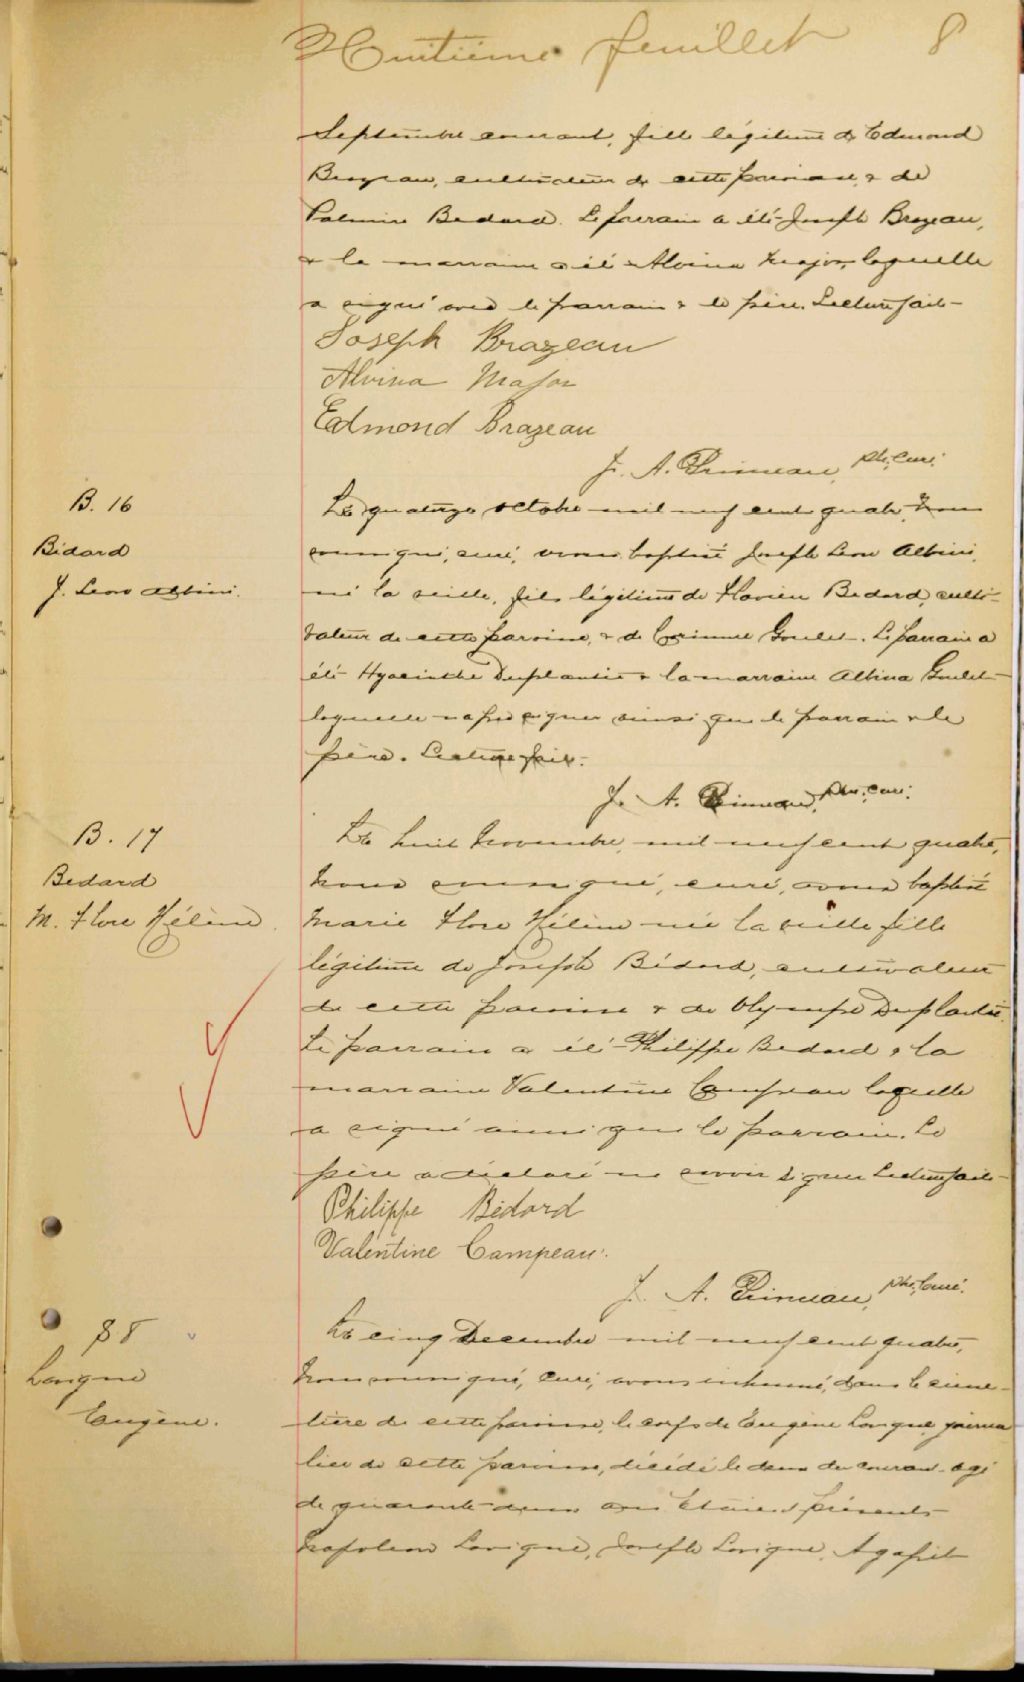 Huitième feuillet 8
Septembre courant, fille légitime de Edmond
Brazeau, cultivateur de cette paroisse, & de
Palmire Bedard. Le parrain a été Joseph Brazeau,
& la marraine a été Alvina Major, laquelle
a signé avec le parrain & le père. Lecture faite
Joseph Brazeau
Alvina Major
Edmond Brazeau
J. A. Primeau, ptre, curé.
B. 16
Bédard
J. Leon Albini.
Le quatorze octobre mil neuf cent quatre, Nous
soussigné, curé, avons baptisé Joseph Leon Albini,
né la veille, fils légitime de Flavien Bedard, culti-
vateur de cette paroisse, & de Corinne Goulet. Le parrain a
été Hyacinthe Duplantie & la marraine Albina Goulet
laquelle n'a pu signer ainsi que le parrain & le
père. Lecture faite.
J. A. Primeau, ptre, curé.
B. 17
Bedard
M. Flore Hélène.
Le huit Novembre, mil neuf cent quatre,
Nous soussigné, curé, avons baptisé
Marie Flore Hélène née la veille fille
légitime de Joseph Bédard, cultivateur
de cette paroisse & de Olympe Duplantie.
Le parrain a été Philippe Bedard & la
marraine Valentine Campeau laquelle
a signé ainsi que le parrain. Le
père a déclaré ne savoir signer Lecture faite
Philippe Bédard
Valentine Campeau.
J. A. Primeau, ptre, curé.
S 8
Lavigne
Eugène.
Le cinq Decembre mil neuf cent quatre,
Nous soussigné, curé, avons inhumé, dans le cime-
tière de cette paroisse, le corps de Eugène Lavigne, journa
lier de cette paroisse, décédé le deux du courant agé
de quarante-deux ans Etaient présents
Napoleon Lavigne, Joseph Lavigne, Agapit